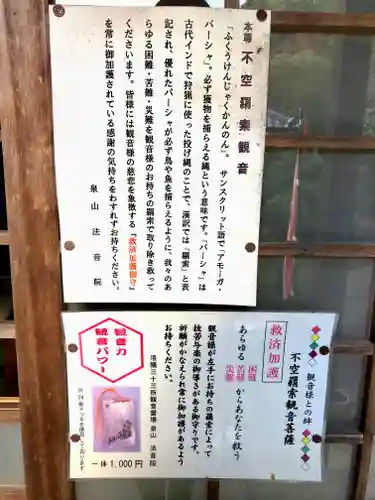 本尊 不空羂索観音
「ふくうけんじゃくかんのん」。 サンスクリット語で「アモーガ・
パーシャ」。必ず獲物を捕らえる縄という意味です。「パーシャ」は
古代インドで狩猟に使った投げ縄のことで、漢訳では「羂索」と表
記され、優れたパーシャが必ず鳥や魚を捕らえるように、我々のあ
らゆる困難・苦難・災難を観音様のお持ちの羂索で取り除き救って
くださいます。皆様には観音様の慈悲を象徴する「救済加護御守」
を常に御加護されている感謝の気持ちをわすれずお持ちください。
泉山 法音院
観音様との絆
不空羂索観音菩薩
救済加護
あらゆる 困難 苦難 災難 からあなたを救う
観音様が左手にお持ちの羂索によって
抜苦与楽の御導きがある御守りです。
祈願がかなえられ常に御加護があるよう
お持ちください。
洛陽三十三所観音霊場 泉山 法音院
観音力
観音パワー
一体 1,000円